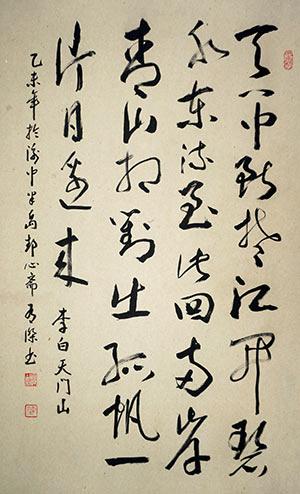 天门中断楚江开碧
水东流至此回两岸
青山相對出孤帆一
片日边来 李白天门山
乙未年於渝中半岛心斋书